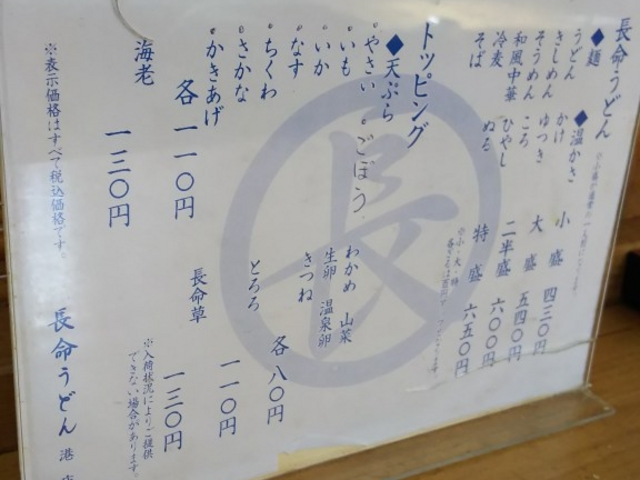 長命うどん
◆麺
うどん
きしめん
そうめん
和風中華
冷麦
そば
◆温かさ
かけ
ゆつき
ころ
ひやし
ぬる
小盛 四三〇円
大盛 五四〇円
二半盛 六〇〇円
特盛 六五〇円
トッピング
◆天ぷら
。やさい 。ごぼう
。いも
。いか
。なす
。ちくわ
。さかな
。かきあげ
各 一一〇円
海老 一三〇円
わかめ 山菜
生卵 温泉卵
きつね
各 八〇円
とろろ 一一〇円
長命草 一三〇円
※入荷状況によりご提供
できない場合があります。
※表示価格はすべて税込価格です。
長命うどん 港
長